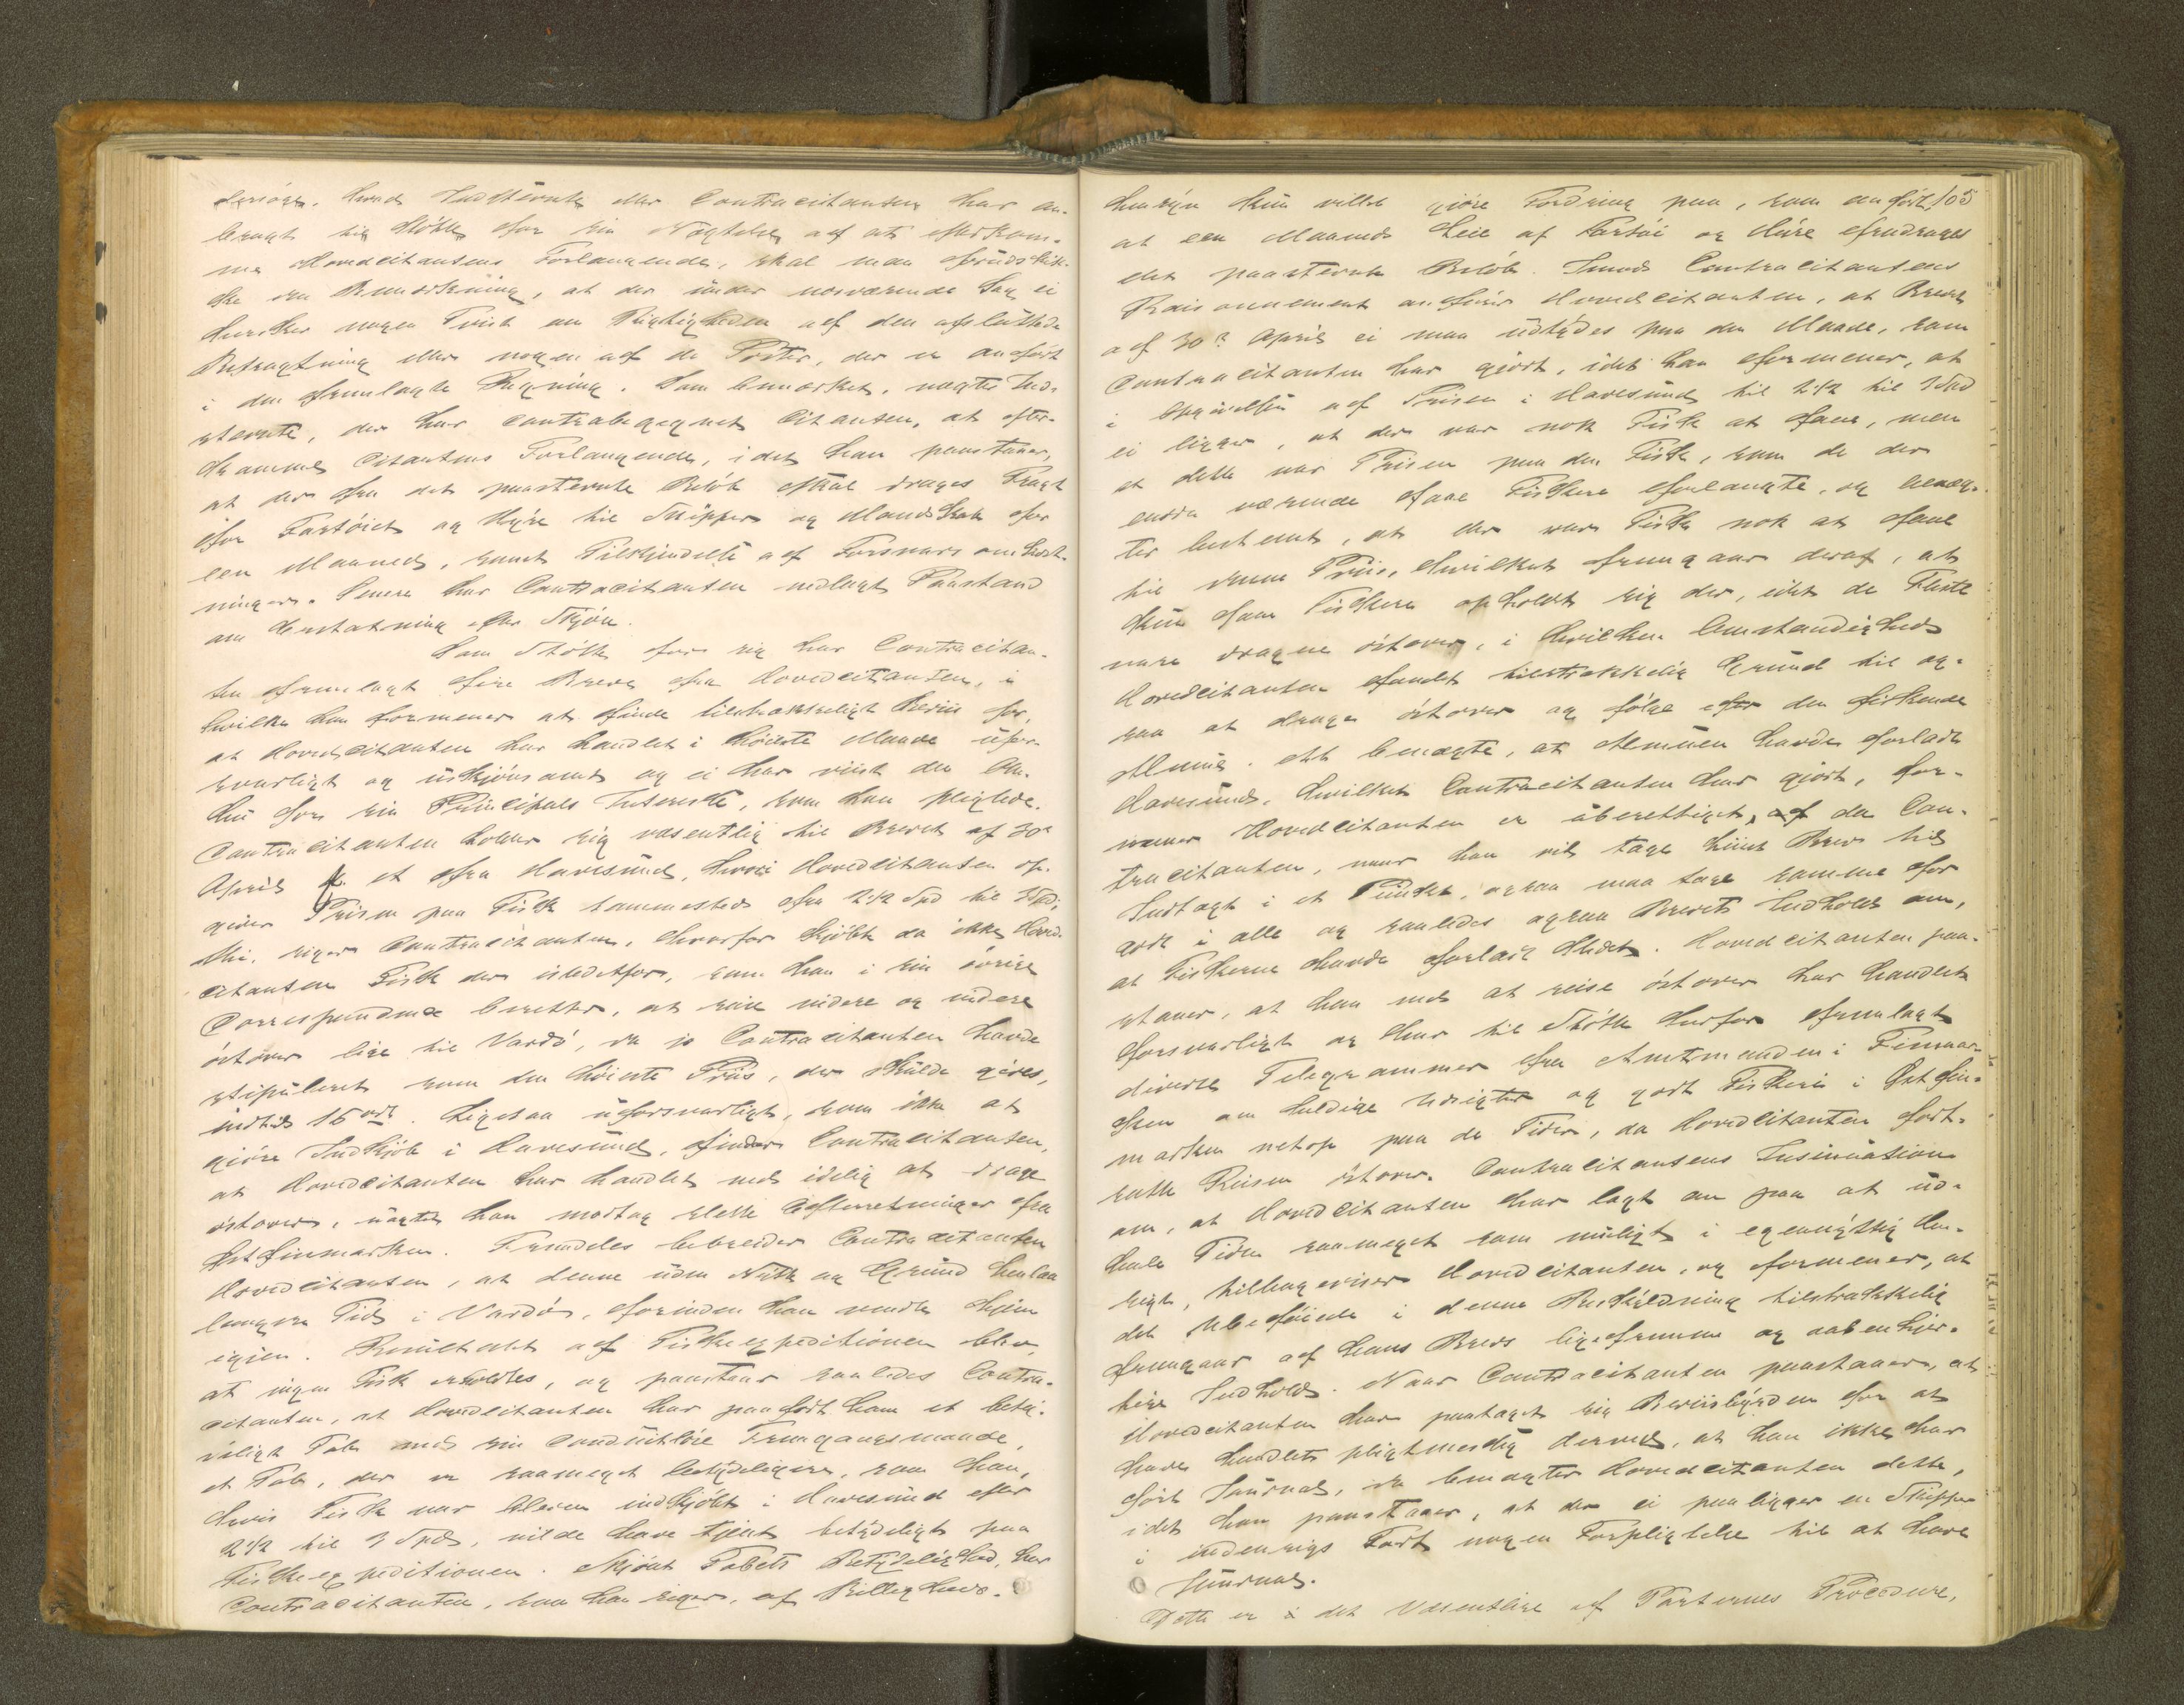 deriøse. Hvad Indstevnte eller Contracitanten har an-
bragt til Støtte for sin Nægtelse af at efterkom-
me Hovedcitantens Forlangende, skal man forudskik-
ke den Bemærkning, at der under nærværende Sag ei
hersker nogen Tvist om Rigtigheden af den afsluttede
Befragtning eller nogen af de Poster, der er anført
i den fremlagte Regning. Som bemærket, nægter Ind-
stevnte, der har contrabegegnet Citanten, at efter-
komme Citantens Forlangende, idet han paastaaer,
at der fra det paastevnte Beløb skal drages Fragt
for Fartøiet og Hyre til Skipper og Mandskab for
een Maaned, samt Tilskjendelse af Forsvars omkost-
ninger. Senere har Contracitanten nedlagt Paastand
om Erstatning efter Skjøn.
Som Støtte for sig har Contracitan-
ten fremlagt fire Breve fra Hovedcitanten, i
hvilke han formener at finde tilstrækkeligt Beviis for,
at Hovedcitanten har handlet i høieste Maade ufor-
svarligt og uskjønsomt og ei har viist den Om-
hu for sin Principals Interesse, som han pligtede.
Contracitanten holder sig væsentlig til Brevet af 30te
April et fra Havøsund, hvori Hovedcitanten op-
giver Prisen paa Fisk sammesteds fra 2 1/2 Spd til 3 Spd;
thi, siger Contracitanten, hvorfor kjøbte da ikke Hoved-
citanten Fisk der istedetfor, som han i sin øvrige
Correspondence beretter, at reise videre og videre
østover lige til Vardø, da jo Contracitanten havde
stipuleret som den høieste Priis, der skulde gives,
indtil 16 ort. Ligesaa uforsvarligt, som ikke at
gjøre Indkjøb i Havøsund, finder Contracitanten,
at Hovedcitanten har handlet ved idelig at drage
østover, uagtet han modtog slette Efterretninger fra
Østfinmarken. Fremdeles bebreider Contracitanten
Hovedcitanten, at denne uden Nytte og Grund henlaa
længere Tid i Vardø, forinden han vendte hjem
igjen. Resultatet af Fiskeexpeditionen blev,
at ingen Fisk erholdtes, og paastaar saaledes Contra-
citanten, at Hovedcitanten har paaført ham et bety-
deligt Tab ved sin conduitløse Fremgangsmaade,
et Tab, der er saameget betydeligere, som han,
hvis Fisk var bleven indkjøbt i Havøsund efter
2 1/2 til 3 Spd, vilde have tjent betydeligt paa
Fiskeexpeditionen. Skjønt Tabets Betydelighed, har
Contracitanten, som han siger, af Billigheds-
hensyn kun villet gjøre Fordring paa, som anført, 105
at een Maaneds Leie af Fartøi og Hyre fradrages
det paastevnte Beløb. Imod Contracitantens
Raisonnement anfører Hovedcitanten, at Brevet
af 30te April ei maa udtydes paa den Maade, som
Contracitanten har gjort, idet han formener, at
i Opgivelsen af Prisen i Havøsund til 2 1/2 til 3 Spd
ei ligger, at der var nok Fisk at faae, men
at dette var Prisen paa den Fisk, som de der
endda værende faae Fiskere forlangte, og benæg-
ter bestemt, at der var Fisk nok at faae
til denne Priis, hvilket fremgaar deraf, at
kun faae Fiskere opholdt sig der, idet de Fleste
vare dragne østover, i hvilken Omstændighed
Hovedcitanten fandt tilstrækkelig Grund til og-
saa at drage østover og følge efter den fiskende
Almue. At benægte, at Almuen havde forladt
Havøsund, hvilket Contracitanten har gjort, for-
mener Hovedcitanten er uberettiget, af da Con-
tracitanten, naar han vil tage hint Brev til
Indtægt i et Punkt, ogsaa maa tage samme for
godt i alle og saaledes ogsaa Brevets Indhold om,
at Fiskerne havde forladt Stedet. Hovedcitanten paa-
staaer, at han ved at reise østover har handlet
forsvarligt og har til Støtte herfor fremlagt
diverse Telegrammer fra Amtmanden i Finmar-
ken om heldige Udsigter og godt Fiskeri i Østfin-
marken netop paa de Tider, da Hovedcitanten fort-
satte Reisen østover. Contracitantens Insinuation
om, at Hovedcitanten har lagt an paa at ud-
hale Tiden saameget som muligt i egennyttig Hen-
sigt, tilbageviser Hovedcitanten, og formener, at
det Ubeføiede i denne Beskyldning tilstrækkelig
fremgaar af hans Brevs ligefremme og aabenhjer-
tige Indhold. Naar Contracitanten paastaaer, at
Hovedcitanten har paataget sig Beviisbyrden for at
have handlet pligtmæssig derved, at han ikke har
ført Journal, da benægter Hovedcitanten dette,
idet han paastaaer, at der ei paaligger en Skipper
i indenrigs Fart nogen Forpligtelse til at have
Journal.
Dette er i det Væsentlige af Parternes Procedure,